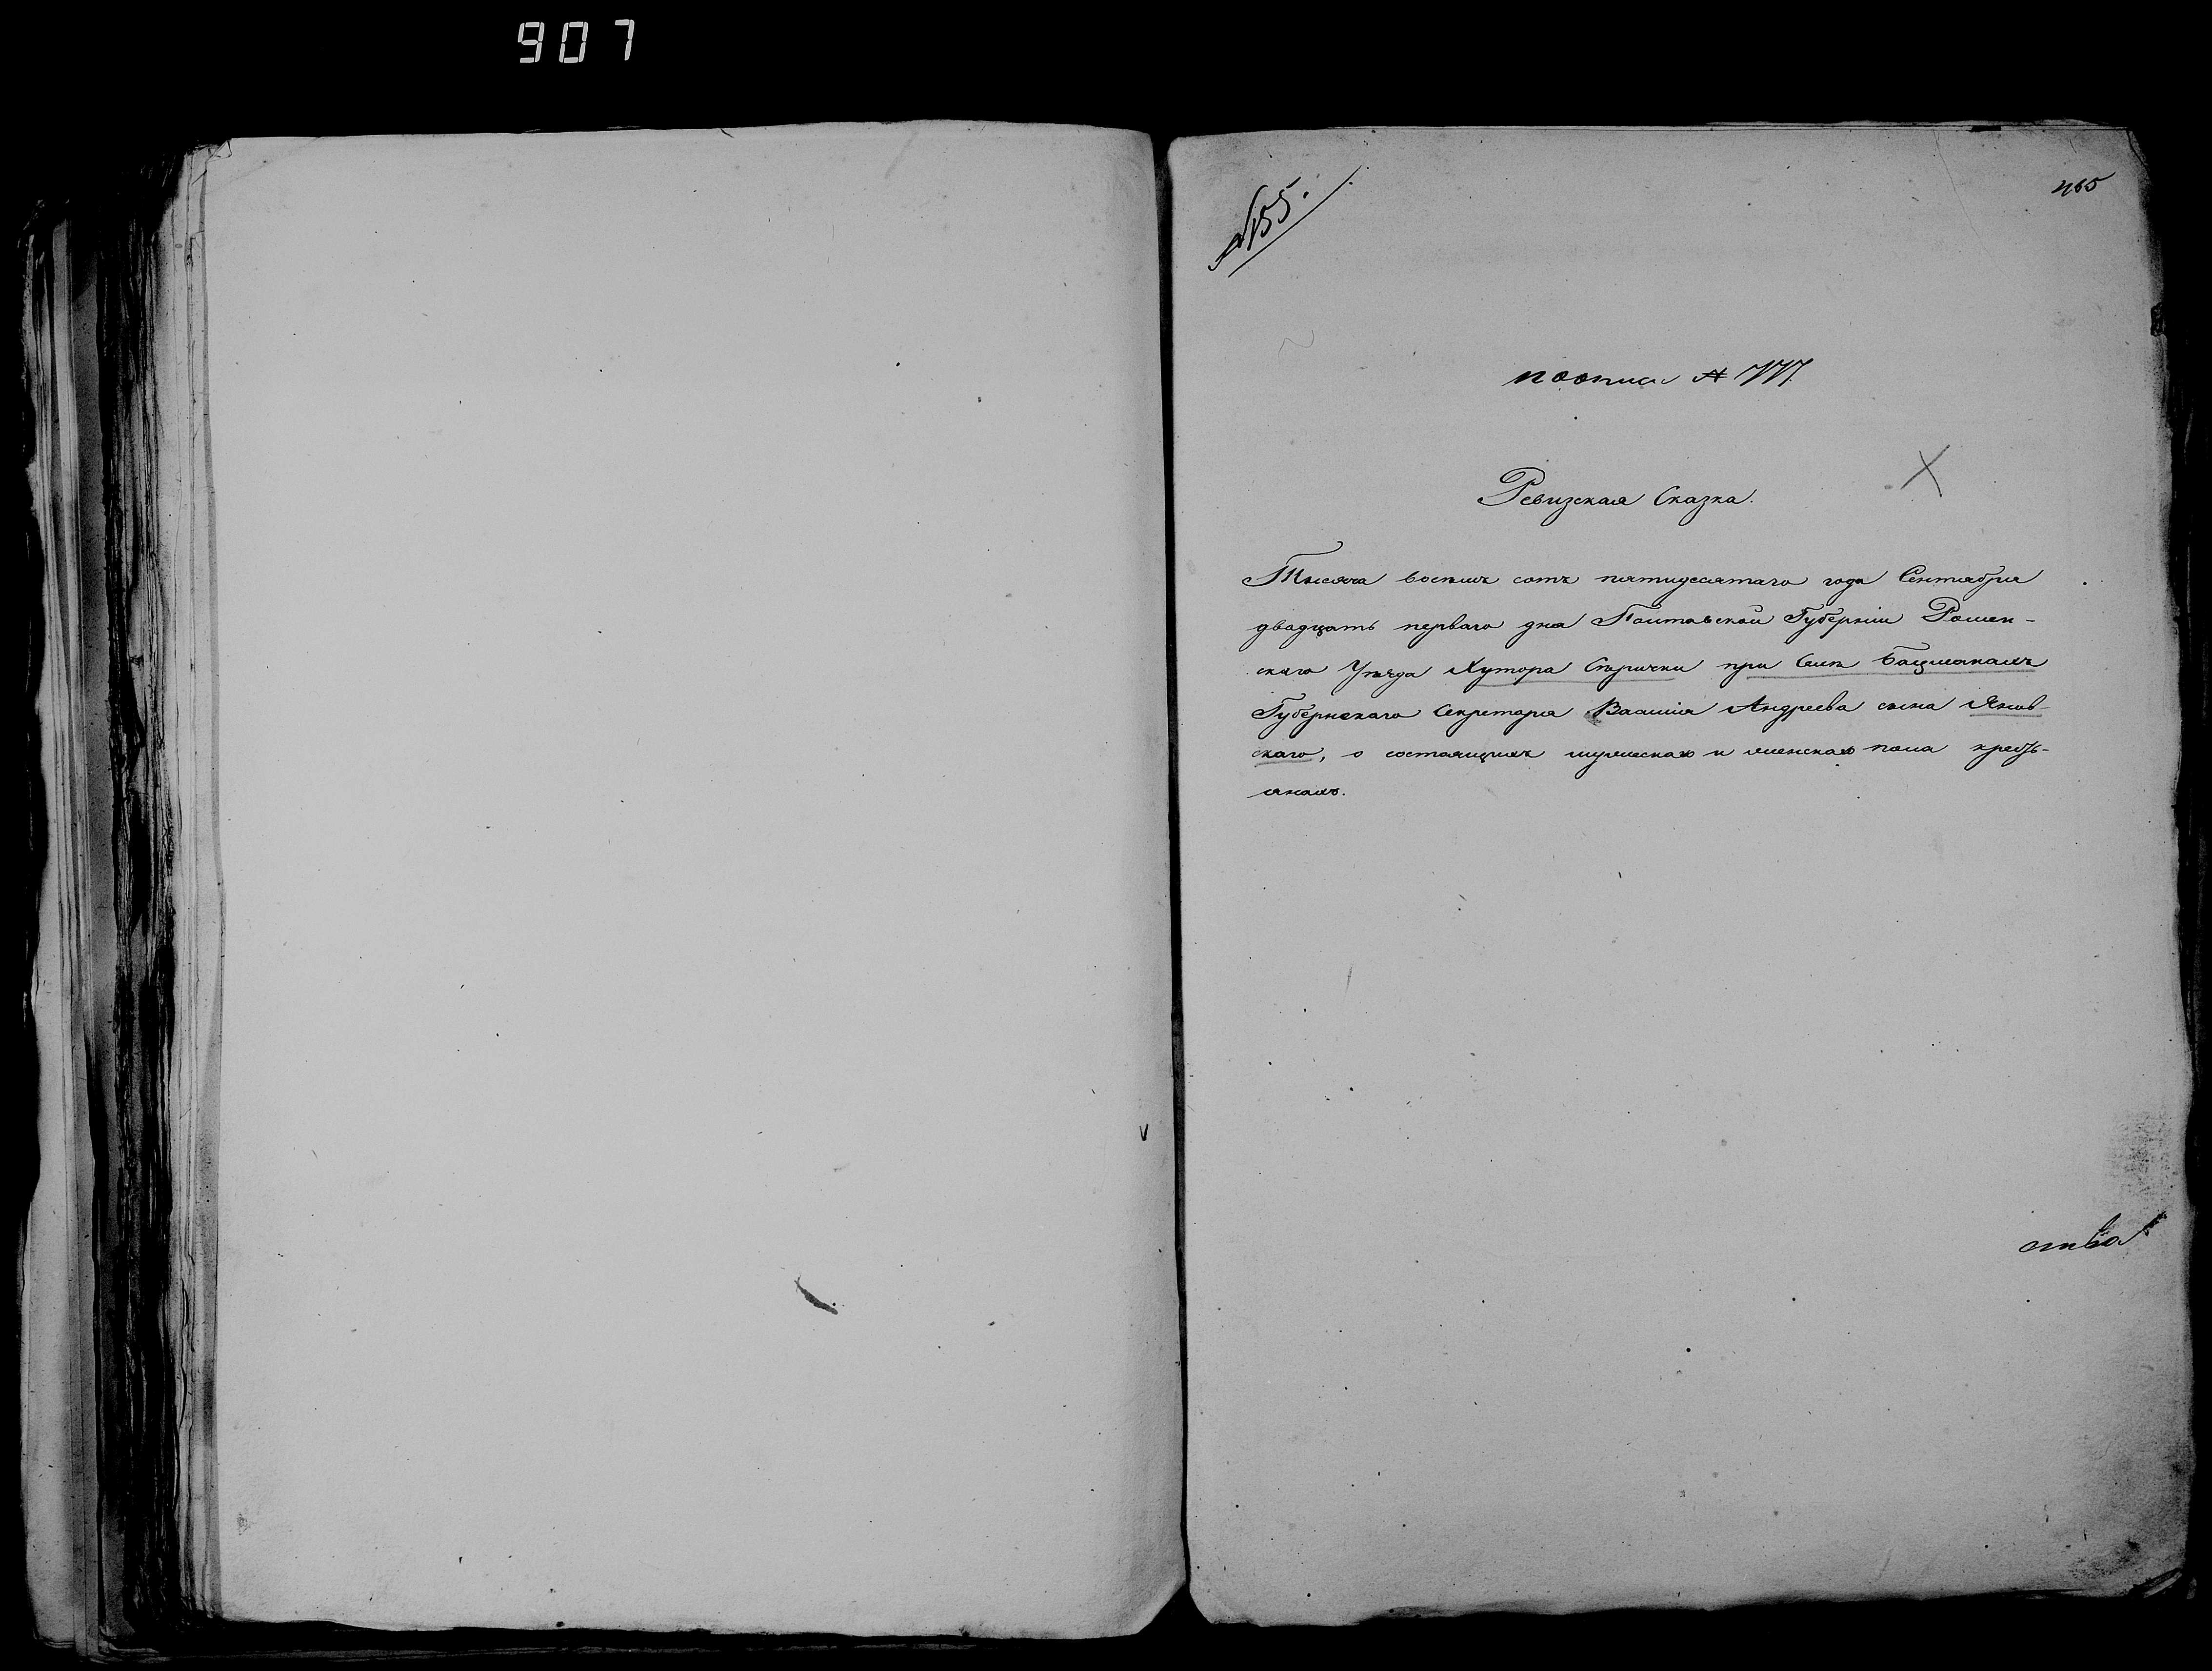 907
465
№155.
по описи № 177.
Ревизская Сказка.
Тысяча восемь сотъ пятидесятаго года Сентября
двадцать перваго дня Полтавской Губерніи Ромен-
скаго Уѣзда Хутора при Селѣ Бацманахъ
Губернскаго Секретаря Василія Андреева сына Янов-
скаго, о состоящихъ мужеска и женска пола кресть-
янахъ.